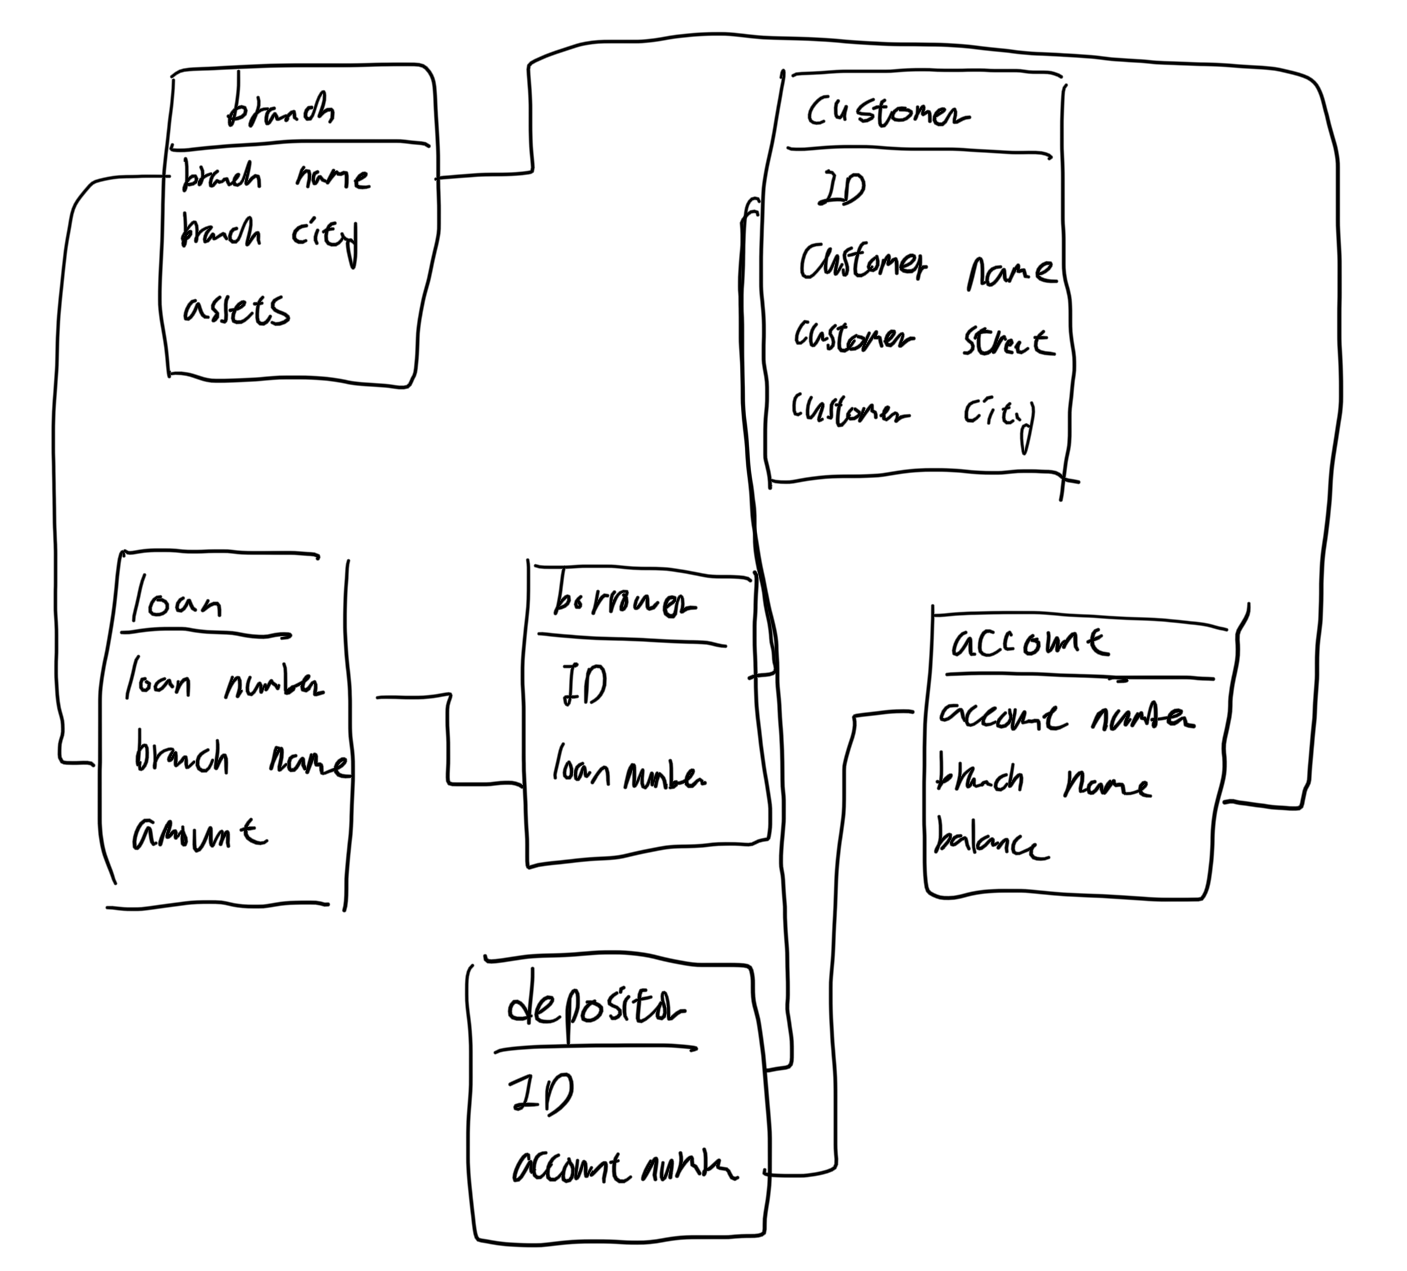 branch
branch name
branch city
assets
customer
ID
customer name
customer street
customer city
loan
loan number
branch name
amount
borrower
ID
loan number
account
account number
branch name
balance
depositor
ID
account number